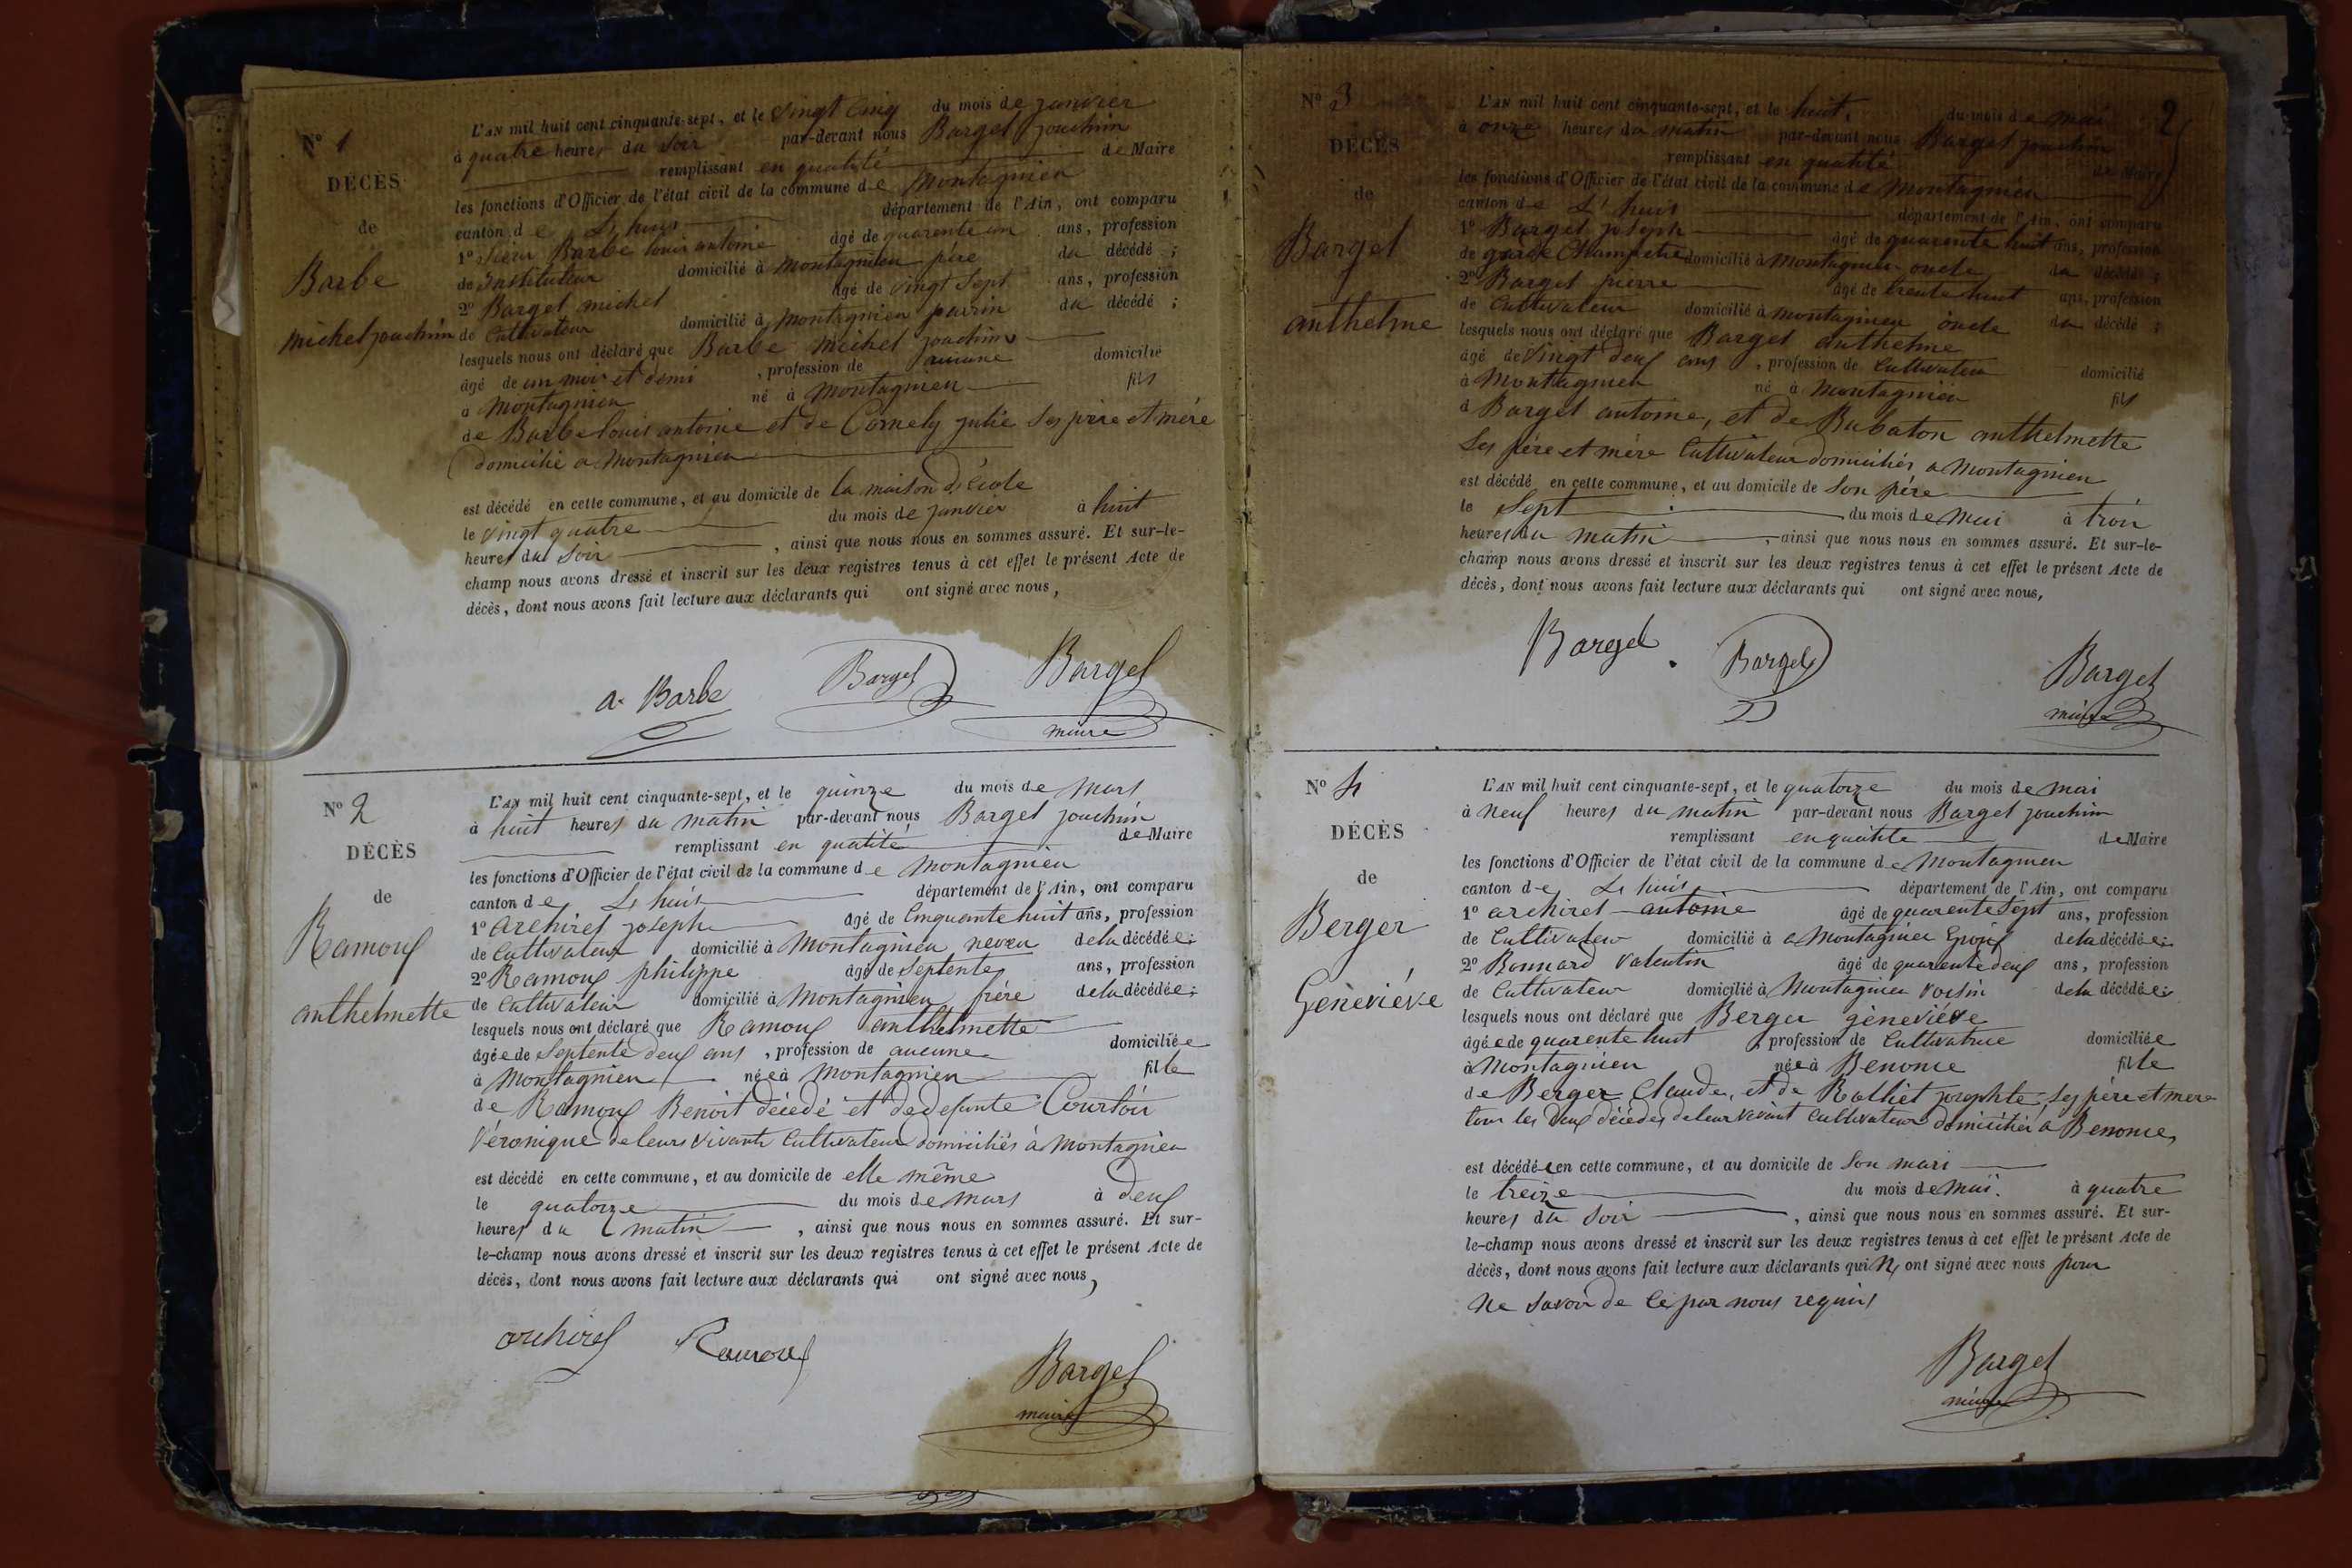 N° 1
DÉCÈS
de
Barbe
michel joachim
L'AN mil huit cent cinquante-sept, et le vingt cinq du mois de janvier
à quatre heures du soir par-devant nous Barget joachim
remplissant en qualité de Maire
les fonctions d'Officier de l'état civil de la commune de Montagnieu
canton de Lhuis département de l'Ain, ont comparu
1° sieur Barbe louis antoine âgé de quarente un ans, profession
de Instituteur domicilié à Montagnieu père du décédé ;
2° Barget michel âgé de vingt sept ans, profession
de Cultivateur domicilié à Montagnieu parrin du décédé ;
lesquels nous ont déclaré que Barbe michel joachim
âgé de un mois et demi , profession de aucune domicilié
a Montagnieu né à Montagnieu fils
de Barbe louis antoine et de Cornely julie ses père et mére
domicilié a Montagnieu
est décédé en cette commune, et au domicile de la maison d'école
le vingt quatre du mois de janvier à huit
heures du soir , ainsi que nous nous en sommes assuré. Et sur-le-
champ nous avons dressé et inscrit sur les deux registres tenus à cet effet le présent Acte de
décès, dont nous avons fait lecture aux déclarants qui ont signé avec nous,
a. Barbe Barget Barget
maire
N° 2
DÉCÈS
de
Ramoux
anthelmette
L'AN mil huit cent cinquante-sept, et le quinze du mois de Mars
à huit heures du matin par-devant nous Barget joachim
remplissant en qualité de Maire
les fonctions d'Officier de l'état civil de la commune de Montagnieu
canton de Lhuis département de l'Ain, ont comparu
1° archiret joseph âgé de Cinquante huit ans, profession
de Cultivateur domicilié à Montagnieu neveu de la décédée ;
2° Ramoux philippe âgé de septente ans, profession
de Cultivateur domicilié à Montagnieu frére de la décédée ;
lesquels nous ont déclaré que Ramoux anthelmette
âgée de septente deux ans , profession de aucune domiciliée
à Montagnieu née à Montagnieu fille
de Ramoux Benoit décedé et de defunte Courtois
Véronique de leurs vivants Cultivateur domiciliés à Montagnieu
est décédé en cette commune, et au domicile de elle même
le quatorze du mois de mars à deux
heures du matin , ainsi que nous nous en sommes assuré. Et sur-
le-champ nous avons dressé et inscrit sur les deux registres tenus à cet effet le présent Acte de
décès, dont nous avons fait lecture aux déclarants qui ont signé avec nous,
archiret Ramoux Barget
maire
2
N° 3
DÉCÈS
de
Barget
anthelme
L'AN mil huit cent cinquante-sept, et le huit, du mois de mai
à onze heures du matin par-devant nous Barget joachim
remplissant en qualité de Maire
les fonctions d'Officier de l'état civil de la commune de Montagnieu
canton de Lhuis département de l'Ain, ont comparu
1° Barget joseph âgé de quarente huit ans, profession
de garde Champetre domicilié à Montagnieu oncle du décédé ;
2° Barget pierre âgé de trente huit ans, profession
de Cultivateur domicilié à Montagnieu oncle du décédé ;
lesquels nous ont déclaré que Barget anthelme
âgé de vingt deux ans , profession de Cultivateur domicilié
à Montagnieu né à Montagnieu fils
d Barget antoine, et de Babaton anthelmette
ses père et mére Cultivateur domiciliés a Montagnieu
est décédé en cette commune, et au domicile de son pére
le sept du mois de mai à trois
heures du matin , ainsi que nous nous en sommes assuré. Et sur-le-
champ nous avons dressé et inscrit sur les deux registres tenus à cet effet le présent Acte de
décès, dont nous avons fait lecture aux déclarants qui ont signé avec nous,
Barget Barget Barget
maire
N° 4
DÉCÈS
de
Berger
Généviéve
L'AN mil huit cent cinquante-sept, et le quatorze du mois de mai
à neuf heures du matin par-devant nous Barget joachim
remplissant en qualité de Maire
les fonctions d'Officier de l'état civil de la commune de Montagnieu
canton de Lhuis département de l'Ain, ont comparu
1° archiret antoine âgé de quarente sept ans, profession
de Cultivateur domicilié à a Montagnieu Epoux de la décédée ;
2° Bonnard Valentin âgé de quarente deux ans, profession
de Cultivateur domicilié à Montagnieu voisin de la décédée ;
lesquels nous ont déclaré que Berger généviéve
âgée de quarente huit , profession de Cultivatrice domiciliée
à Montagnieu née à Benonce fille
de Berger Claude, et de Rolliet josephte ses père et mere
tous les deux décédés de leur vivant cultivateur domicilié à Benonce,
est décédée en cette commune, et au domicile de son mari
le treize du mois de mai. à quatre
heures du soir , ainsi que nous nous en sommes assuré. Et sur-
le-champ nous avons dressé et inscrit sur les deux registres tenus à cet effet le présent Acte de
décès, dont nous avons fait lecture aux déclarants qui N, ont signé avec nous pour
ne savoir de ce par nous requis
Barget
maire